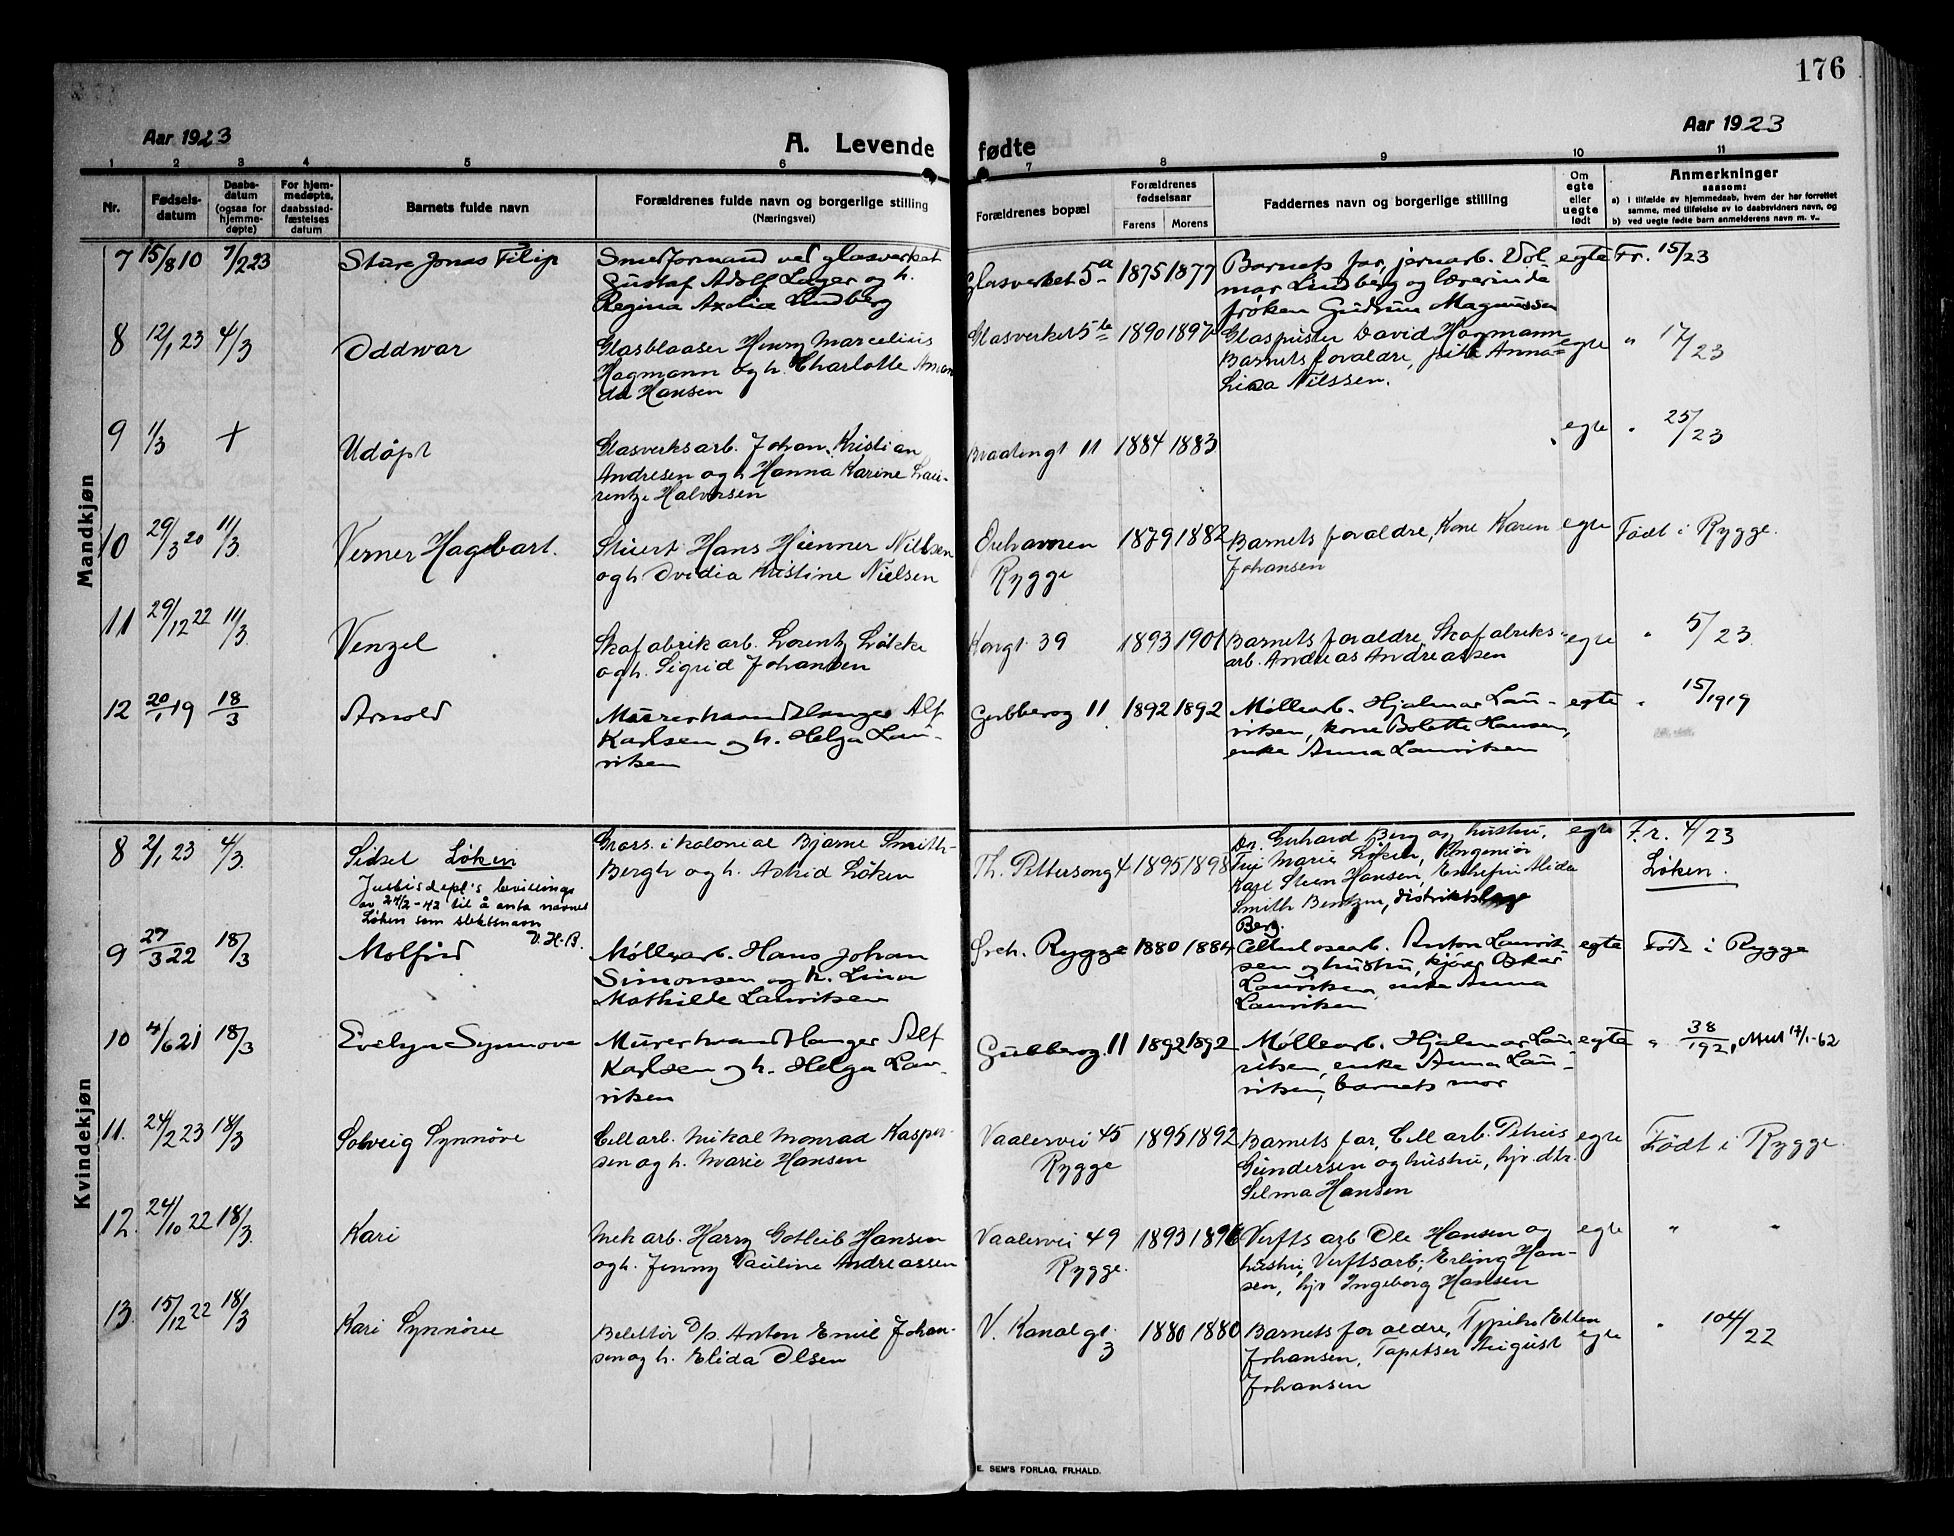 176
Aar 1923
A. Levende fødte
Aar 1923
1 2 3 4 5 6 7 8 9 10 11
Nr.
Fødsels-
datum
Daabs-
datum
(ogsaa for
hjemme-
døpte)
For hjem-
medøpte,
daabsstad-
fæstelses
datum
Barnets fulde navn
Forældrenes fulde navn og borgerlige stilling
(Næringsvei)
Forældrenes bopæl
Forældrenes
fødselsaar
Farens Morens
Faddernes navn og borgerlige stilling
Om
egte
eller
uegte
født
Anmerkninger
saasom:
a) i tilfælde av hjemmedaab, hvem der har forrettet
samme, med tilføielse av to daabsvidners navn, og
b) ved uegte født barn anmelderens navn m. v..
Mandkjøn
7 15/8 10 7/2 23 Sture Jonas Filip
Smedformand ved glasverket
Gustaf Adolf Lager og h.
Regina Axelia Lindberg
Glasverket 5a 1875 1877
Barnets far, jernarb. Vol-
mar Lindberg og lærerinde
frøken Gudrun Magnussen
egte Fr. 15/23
8 12/1 23 4/3 Oddvar
Glasblaaser Henry Marcelius
Hagmann og h. Charlotte Aman
da Hansen
Glasverket 5 1890 1897
Glaspuster David Hagmann
Barnets forældre, pike Anna-
Lina Nilssen.
egte " 17/23
9 1/3 + Udøpt
Glasverksarb. Johan Kristian
Andresen og h Hanna Karine Lau-
rentze Halvorsen
11 1884 1883
egte " 25/23
10 29/3 20 11/3 Verner Hagbart.
Stuert Hans Hienner Nielsen
og h Ovidia Kristine Nielsen
Rygge
1879 1882
Barnets forældre, Kone Karen
Johansen
egte Født i Rygge.
11 29/12 22 11/3. Venzel
Skofabrikarb. Lorentz Løkke
og h. Sigrid Johansen
Kongt 39 1893 1901
Barnets forældre, Skofabriks-
arb. Andreas Andreassen
egte " 5/23
12 20/1 19 18/3 Arnold
Murerhaandlanger Alf
Karlsen og h. Helga Lau-
ritsen
Gubberog 11 1892 1892
Møllearb. Hjalmar Lau-
ritsen, kone Bolette Hansen,
enke Anna Lauritsen
egte " 15/1919
Kvindekjøn
8 2/1 23 4/3. Sidsel Løken
Justisdept's bevillings
av 24/2-42 til å anta navnet
Løken som slektsnavn
V.H.B.
Gross. i kolonial Bjarne Smith-
Bergh og h. Astrid Løken
Th. Pettersong 4 1895 1898
Dr. Gerhard Berg og hustru,
Marie Løken, Ingeniør
Kare Steen Hansen, Enkefru Alida
Smith Bentzen, distriktslæge
Berg.
egte Fr. 4/23
Løken.
9 27/3 22 18/3 Molfrid
Møllearb. Hans Johan
Simonsen og h. Lina
Mathilde Lauritsen
Rygge 1880 1884
Cellulosearb. Anton Laurit-
sen og hustru, kjører Oskar
Lauritsen, enke Anna
Lauritsen
egte Født i Rygge
10 4/6 21 18/3 Evelyn Synnøve
Murerhaandlanger Alf
Karlsen og h. Helga Lau-
ritsen
Gubberog. 11 1892 1892
Møllearb. Hjalmar Lau-
ritsen, enke Anna Lau-
ritsen, barnets mor
egte " 38/1921, 17/1-62
11. 24/2 23 18/3 Solveig Synnøve
Cellarb. Mikal Monrad Kasper-
sen og h. Marie Hansen
Vaalervei 45
Rygge
1895 1892
Barnets far, Cellarb. Petrus
Gundersen og hustru, hjv. dtr.
Selma Hansen
egte Født i Rygge.
12. 24/10 22 18/3. Kari
Mek arb. Harry Gotleib Hansen
og h. Jenny Pauline Andreassen
Vaalervei 49
Rygge.
1893 1896
Verfts arb Ole Hansen og
hustru, Verftsarb; Erling Han-
sen, hjv Ingeborg Hansen
egte " "
13. 15/12 22 18/3 Kari Synnøve
D/S. Anton Emil Johan-
sen og h. Elida Olsen
V. Kanalgt.
3
1880 1880
Barnets forældre, Ellen
Johansen, Tapetser August
Johansen
egte " 104/22
E. SEM'S FORLAG, FR.HALD.